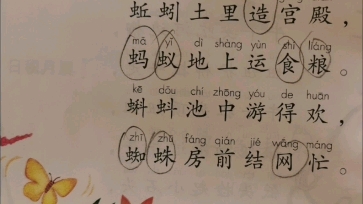 蚯蚓土里造宫殿，
mǎ yǐ dì shàng yùn shí liáng
蚂蚁地上运食粮。
kē dǒu chí zhōng yóu dé huān
蝌蚪池中游得欢，
zhī zhū fáng qián jié wǎng máng
蜘蛛房前结网忙。